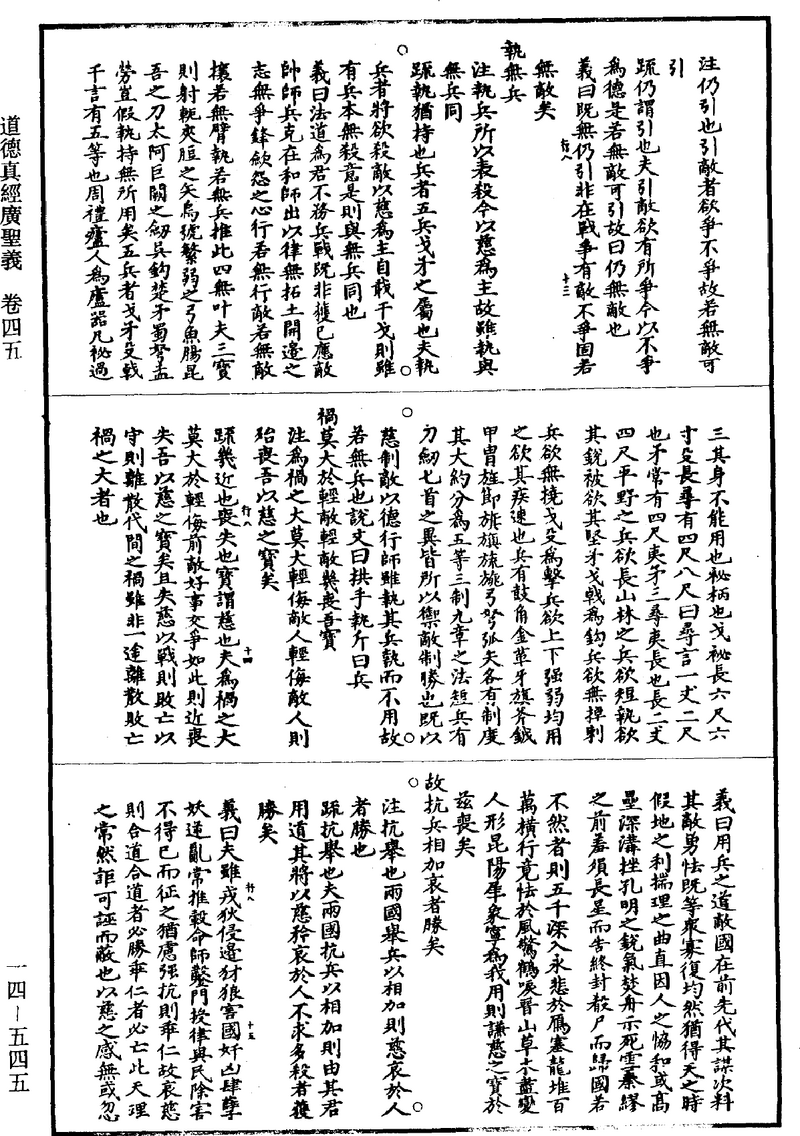 道德真經廣聖義　卷四五
一四－五四五
注仍引也引敵者欲爭不爭故若無敵可
引
疏仍謂引也夫引敵欲有所爭今以不爭
為德是若無敵可引故曰仍無敵也
義曰既無仍引非在戰爭有敵不爭固若
行八
十三
無敵矣
執無兵
注執兵所以表殺今以慈為主故雖執與
無兵同
疏執猶持也兵者五兵戈矛之屬也夫執
兵者將欲殺敵以慈為主自戢干戈則雖
有兵本無殺意是則與無兵同也
義曰法道為君不務兵戰既非獲已應敵
帥師兵克在和師出以律無拓土開邊之
志無爭鋒斂怨之心行吾無行敵若無敵
攘若無臂執若無兵推此四無叶夫三寶
則射軏夾脰之矢烏號繁弱之弓魚腸昆
吾之刀太阿巨闕之劒吳鈎楚矛蜀弩孟
勞豈假執持無所用矣五兵者戈矛殳戟
千言有五等也周禮廬人為廬器凡柲過
三其身不能用也柲柄也戈柲長六尺六
寸殳長尋有四尺八尺曰尋言一丈二尺
也矛常有四尺夷矛三尋夷長也長二丈
四尺平野之兵欲長山林之兵欲短執欲
其銳被欲其堅矛戈戟為鈎兵欲無掉剸
兵欲無撓戈殳為擊兵欲上下强弱均用
之欲其疾速也兵有鼓角金革牙旗斧鉞
甲冑旌節旂旗旒旐弓弩弧矢各有制度
其大約分為五等三制九章之法短兵有
刀劒匕首之異皆所以禦敵制勝也既以
慈制敵以德行師雖執其兵執而不用故
若無兵也說文曰拱手執斤曰兵
禍莫大於輕敵輕敵幾喪吾寶
注為禍之大莫大輕侮敵人輕侮敵人則
殆喪吾以慈之寶矣
疏幾近也喪失也寶謂慈也夫為禍之大
行八
十四
莫大於輕侮前敵好事交爭如此則近喪
失吾以慈之寶矣且失慈以戰則敗亡以
守則離散代間之禍雖非一途離散敗亡
禍之大者也
義曰用兵之道敵國在前先代其謀次料
其敵勇怯既等衆寡復均然猶得天之時
假地之利揣理之曲直因人之恊和或高
壘深溝挫孔明之銳氣焚舟示死雪秦繆
之前羞須長星而告終封殽尸而歸國若
不然者則五千深入永悲於鴈塞龍堆百
萬橫行竟怯於風驚鶴唳晉山草木盡變
人形昆陽犀象寧為我用則謙慈之寶於
茲喪矣
故抗兵相加哀者勝矣
注抗舉也兩國舉兵以相加則慈哀於人
者勝也
疏抗舉也夫兩國抗兵以相加則由其君
用道其將以慈矜哀於人不求多殺者獲
勝矣
義曰夫雖戎狄侵邊豺狼害國奸凶肆孽
行八
十五
妖逆亂常推轂命師鑿門授律與民除害
不得已而征之猶慮强抗則乖仁故哀慈
則合道合道者必勝乖仁者必亡此天理
之常然詎可誣而敵也以慈之感無或忽